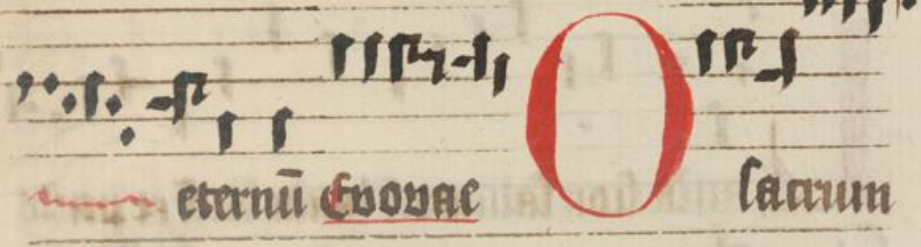 eternū Evovae O sacrum